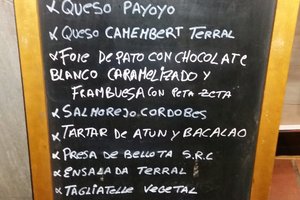 x QUESO PAYOYO
x QUESO CAMEMBERT TERRAL
x FOIE DE PATO CON CHOCOLATE
BLANCO CARAMELIZADO Y
FRAMBUESA CON PETA ZETA
x SALMOREJO CORDOBES
x TARTAR DE ATUN Y BACALAO
x PRESA DE BELLOTA S.R.C
x ENSALADA TERRAL
x TAGLIATELLE VEGETAL